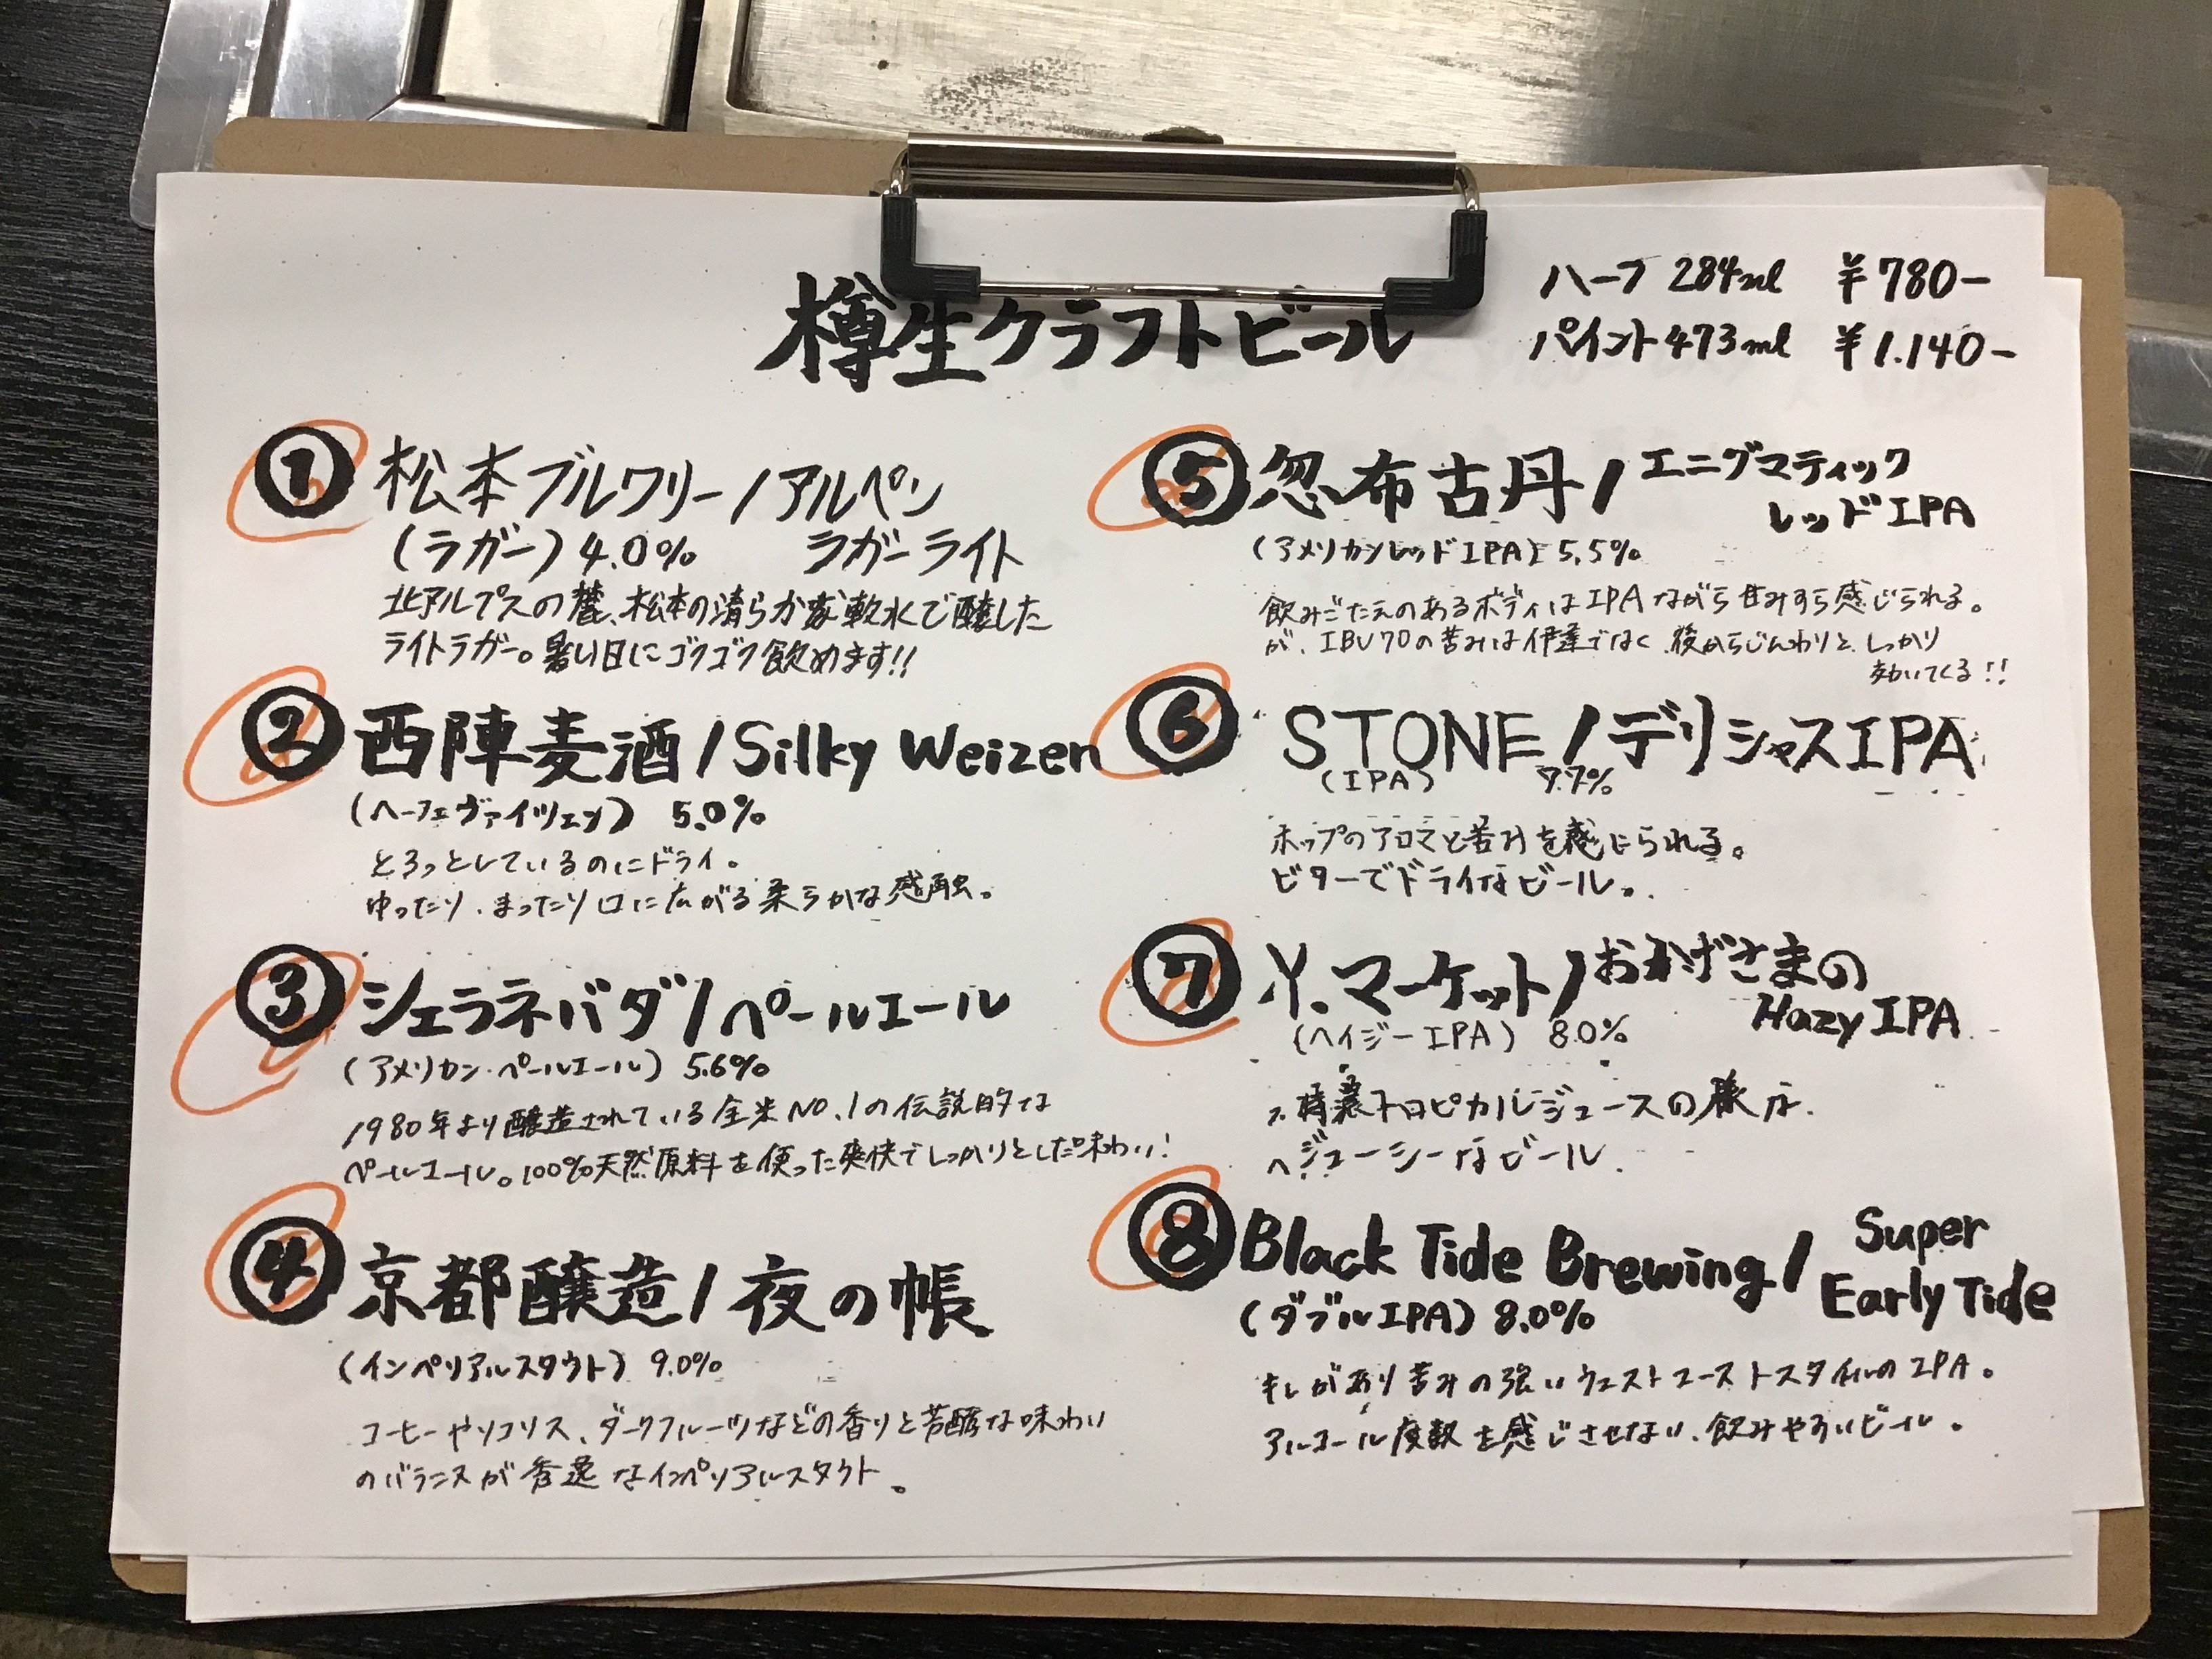 樽生クラフトビール
ハーフ 284ml ¥780-
パイント 473ml ¥1.140-
① 松本ブルワリー/アルペン
(ラガー) 4.0% ラガーライト
北アルプスの麓、松本の清らかな軟水で醸した
ライトラガー。暑い日にゴクゴク飲めます!!
② 西陣麦酒/Silky Weizen
(ヘーフェヴァイツェン) 5.0%
とろっとしているのにドライ。
ゆったり、まったり口に広がる柔らかな感触。
③ シェラネバダ/ペールエール
(アメリカン・ペールエール) 5.6%
1980年より醸造されている全米NO.1の伝説的な
ペールエール。100%天然原料を使った爽快でしっかりとした味わい!
④ 京都醸造/夜の帳
(インペリアルスタウト) 9.0%
コーヒーやリコリス、ダークフルーツなどの香りと芳醇な味わい
のバランスが秀逸なインペリアルスタウト。
⑤ 忽布古丹/エニグマティック
レッドIPA
(アメリカンレッドIPA) 5.5%
飲みごたえのあるボディはIPAながら甘みすら感じられる。
が、IBU70の苦みは伊達ではく、後からじんわりと、しっかり
効いてくる!!
⑥ STONE/デリシャスIPA
(IPA) 7.7%
ホップのアロマと苦みを感じられる。
ビターでドライなビール。
⑦ Y.マーケット/おかげさまの
Hazy IPA
(ヘイジーIPA) 8.0%
トロピカルジュースの様な、
ジューシーなビール.
⑧ Black Tide Brewing/Super
Early Tide
(ダブルIPA) 8.0%
キレがあり苦みの強いウエストコーストスタイルのIPA。
アルコール度数を感じさせない、飲みやすいビール。